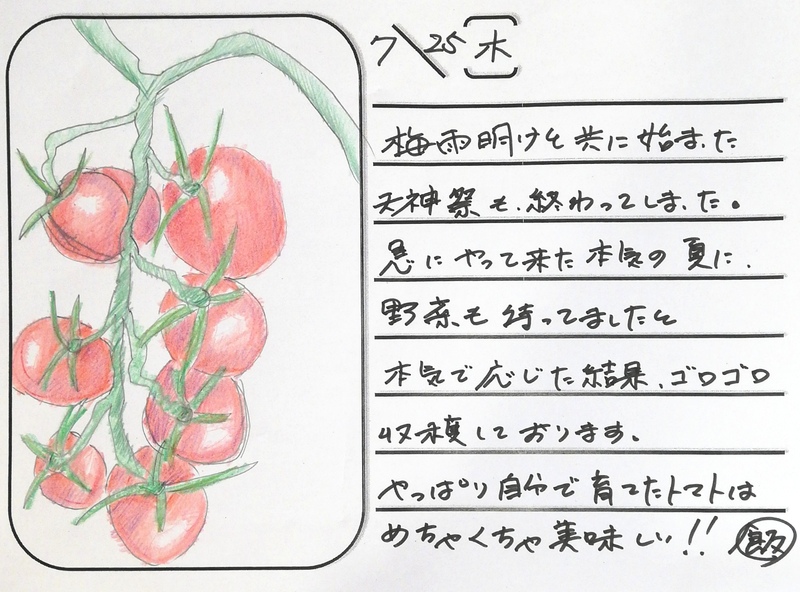 7/25 木
梅雨明けと共に始まった
天神祭も、終わってしまった。
急にやって来た本気の夏に、
野菜も待ってましたと
本気で応じた結果、ゴロゴロ
収穫しております。
やっぱり自分で育てたトマトは
めちゃくちゃ美味しい!! 飯